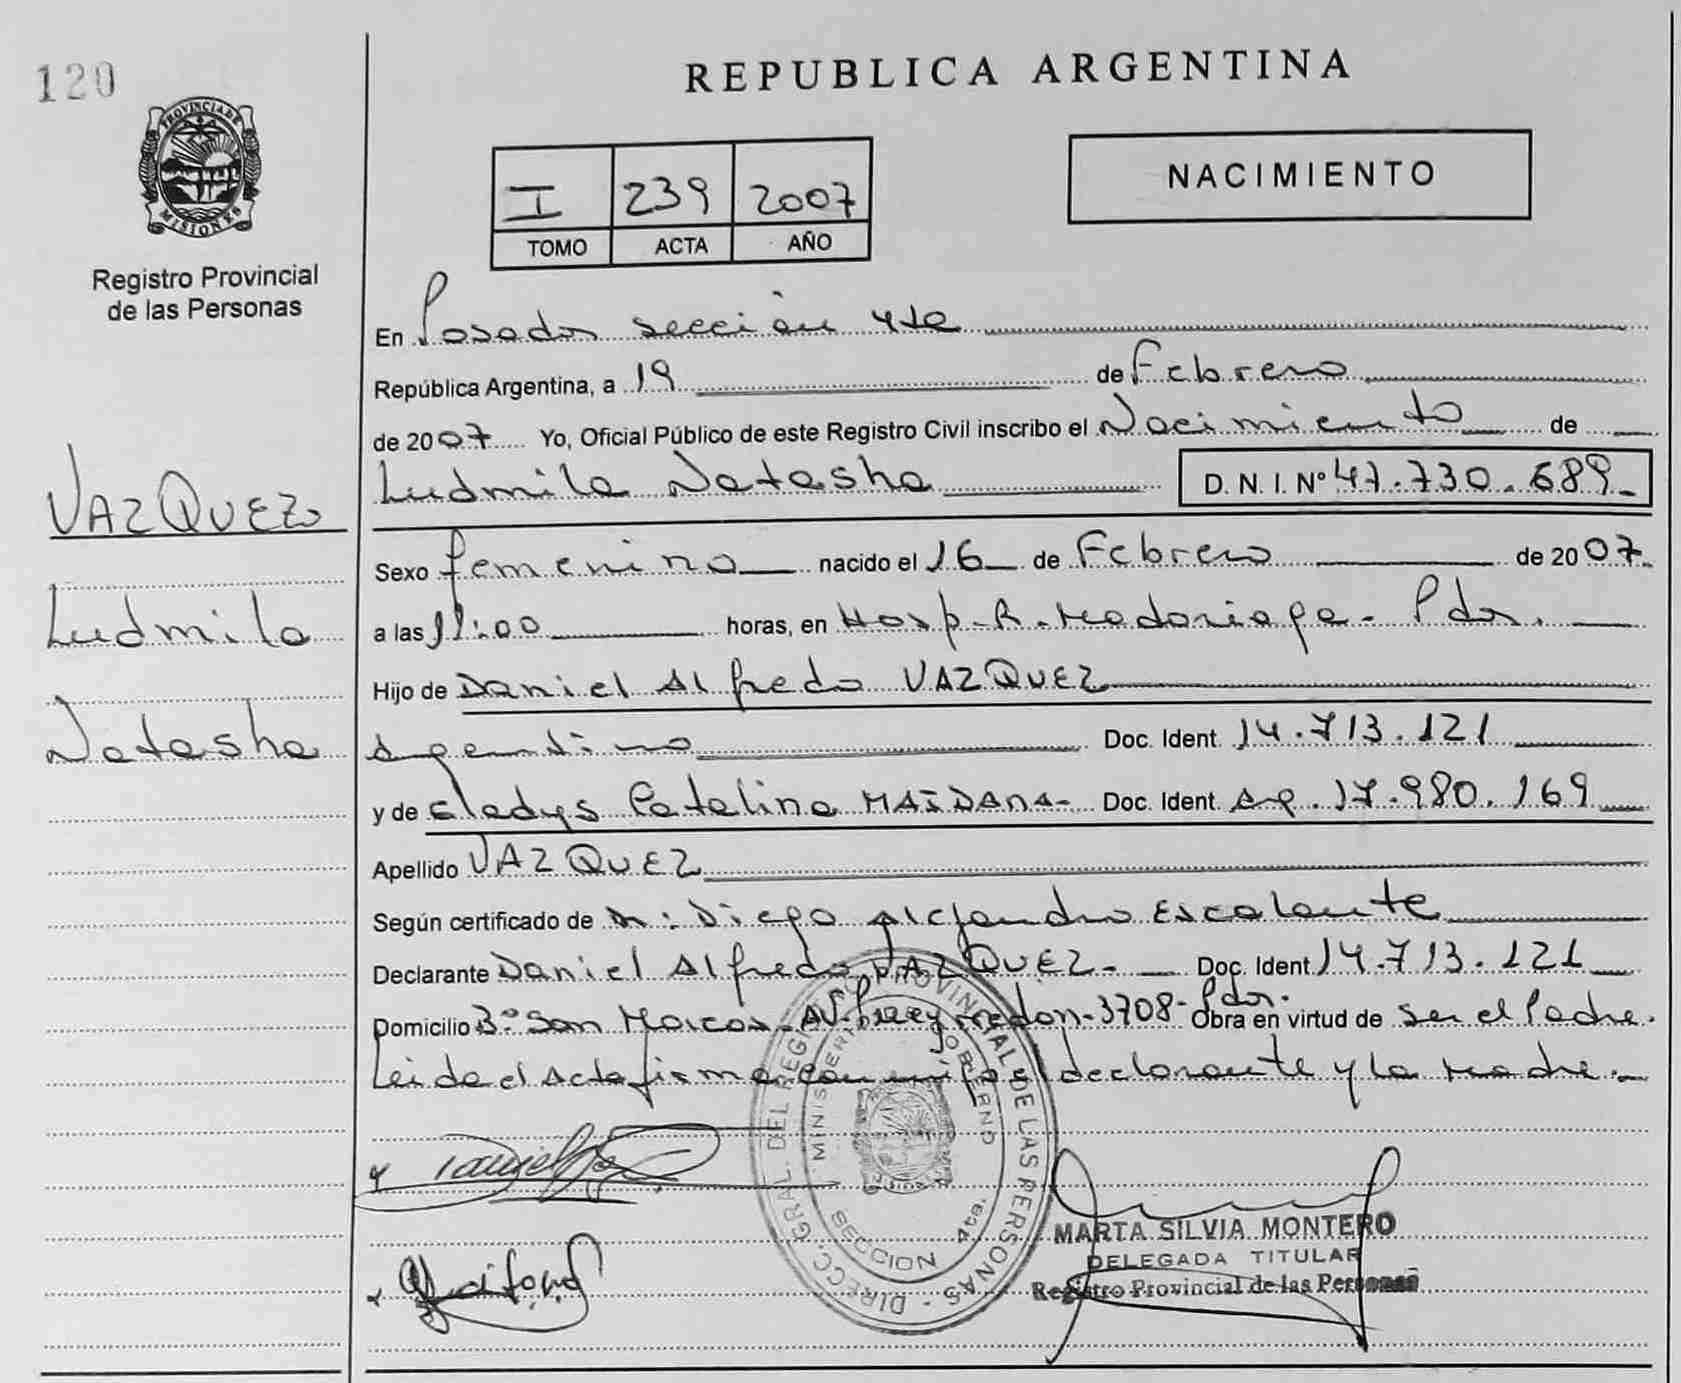 120
REPUBLICA ARGENTINA
PROVINCIA DE MISIONES
Registro Provincial
de las Personas
I 239 2007
TOMO ACTA AÑO
NACIMIENTO
En Posadas sección 4ta
República Argentina, a 19 de Febrero
de 2007 Yo, Oficial Público de este Registro Civil inscribo el Nacimiento de
Ludmila Natasha D. N. I. Nº 47.730.689
VAZQUEZ
Ludmila
Natasha
Sexo femenino nacido el 16 de Febrero de 2007
a las 11:00 horas, en Hosp. R. Madariaga - Pdas.
Hijo de Daniel Alfredo VAZQUEZ
argentino Doc. Ident. 14.713.121
y de Gladys Catalina MAIDANA- Doc. Ident. Arg. 17.980.169
Apellido VAZQUEZ
Según certificado de Dr: Diego Alejandro Escalante
Declarante Daniel Alfredo VAZQUEZ- Doc. Ident. 14.713.121
Domicilio Bº San Marcos - AV. Pueyrredon-3708- Pdas. Obra en virtud de ser el Padre.
Leida el Acta firma conmigo el declarante y la Madre.
DIRECC. GRAL. DEL REGISTRO PROVINCIAL DE LAS PERSONAS
MINISTERIO GOBIERNO
SECCION 4ta.
MARTA SILVIA MONTERO
DELEGADA TITULAR
Registro Provincial de las Personas